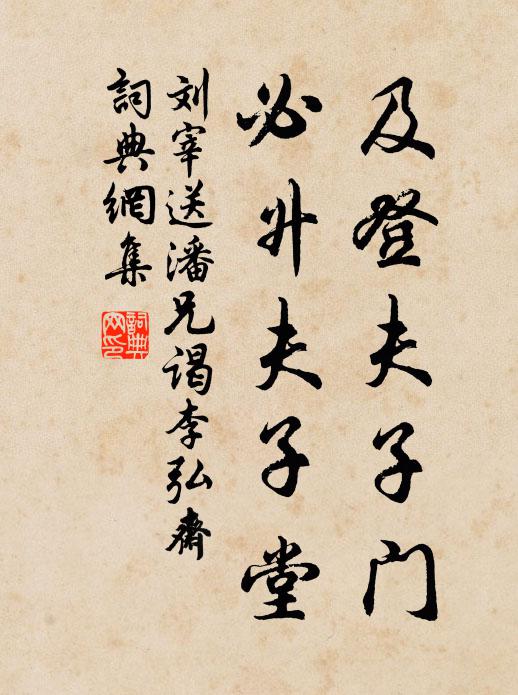 及登夫子门
必升夫子堂
刘宰送潘兄谒李弘斋
詞典網集
詞典网印